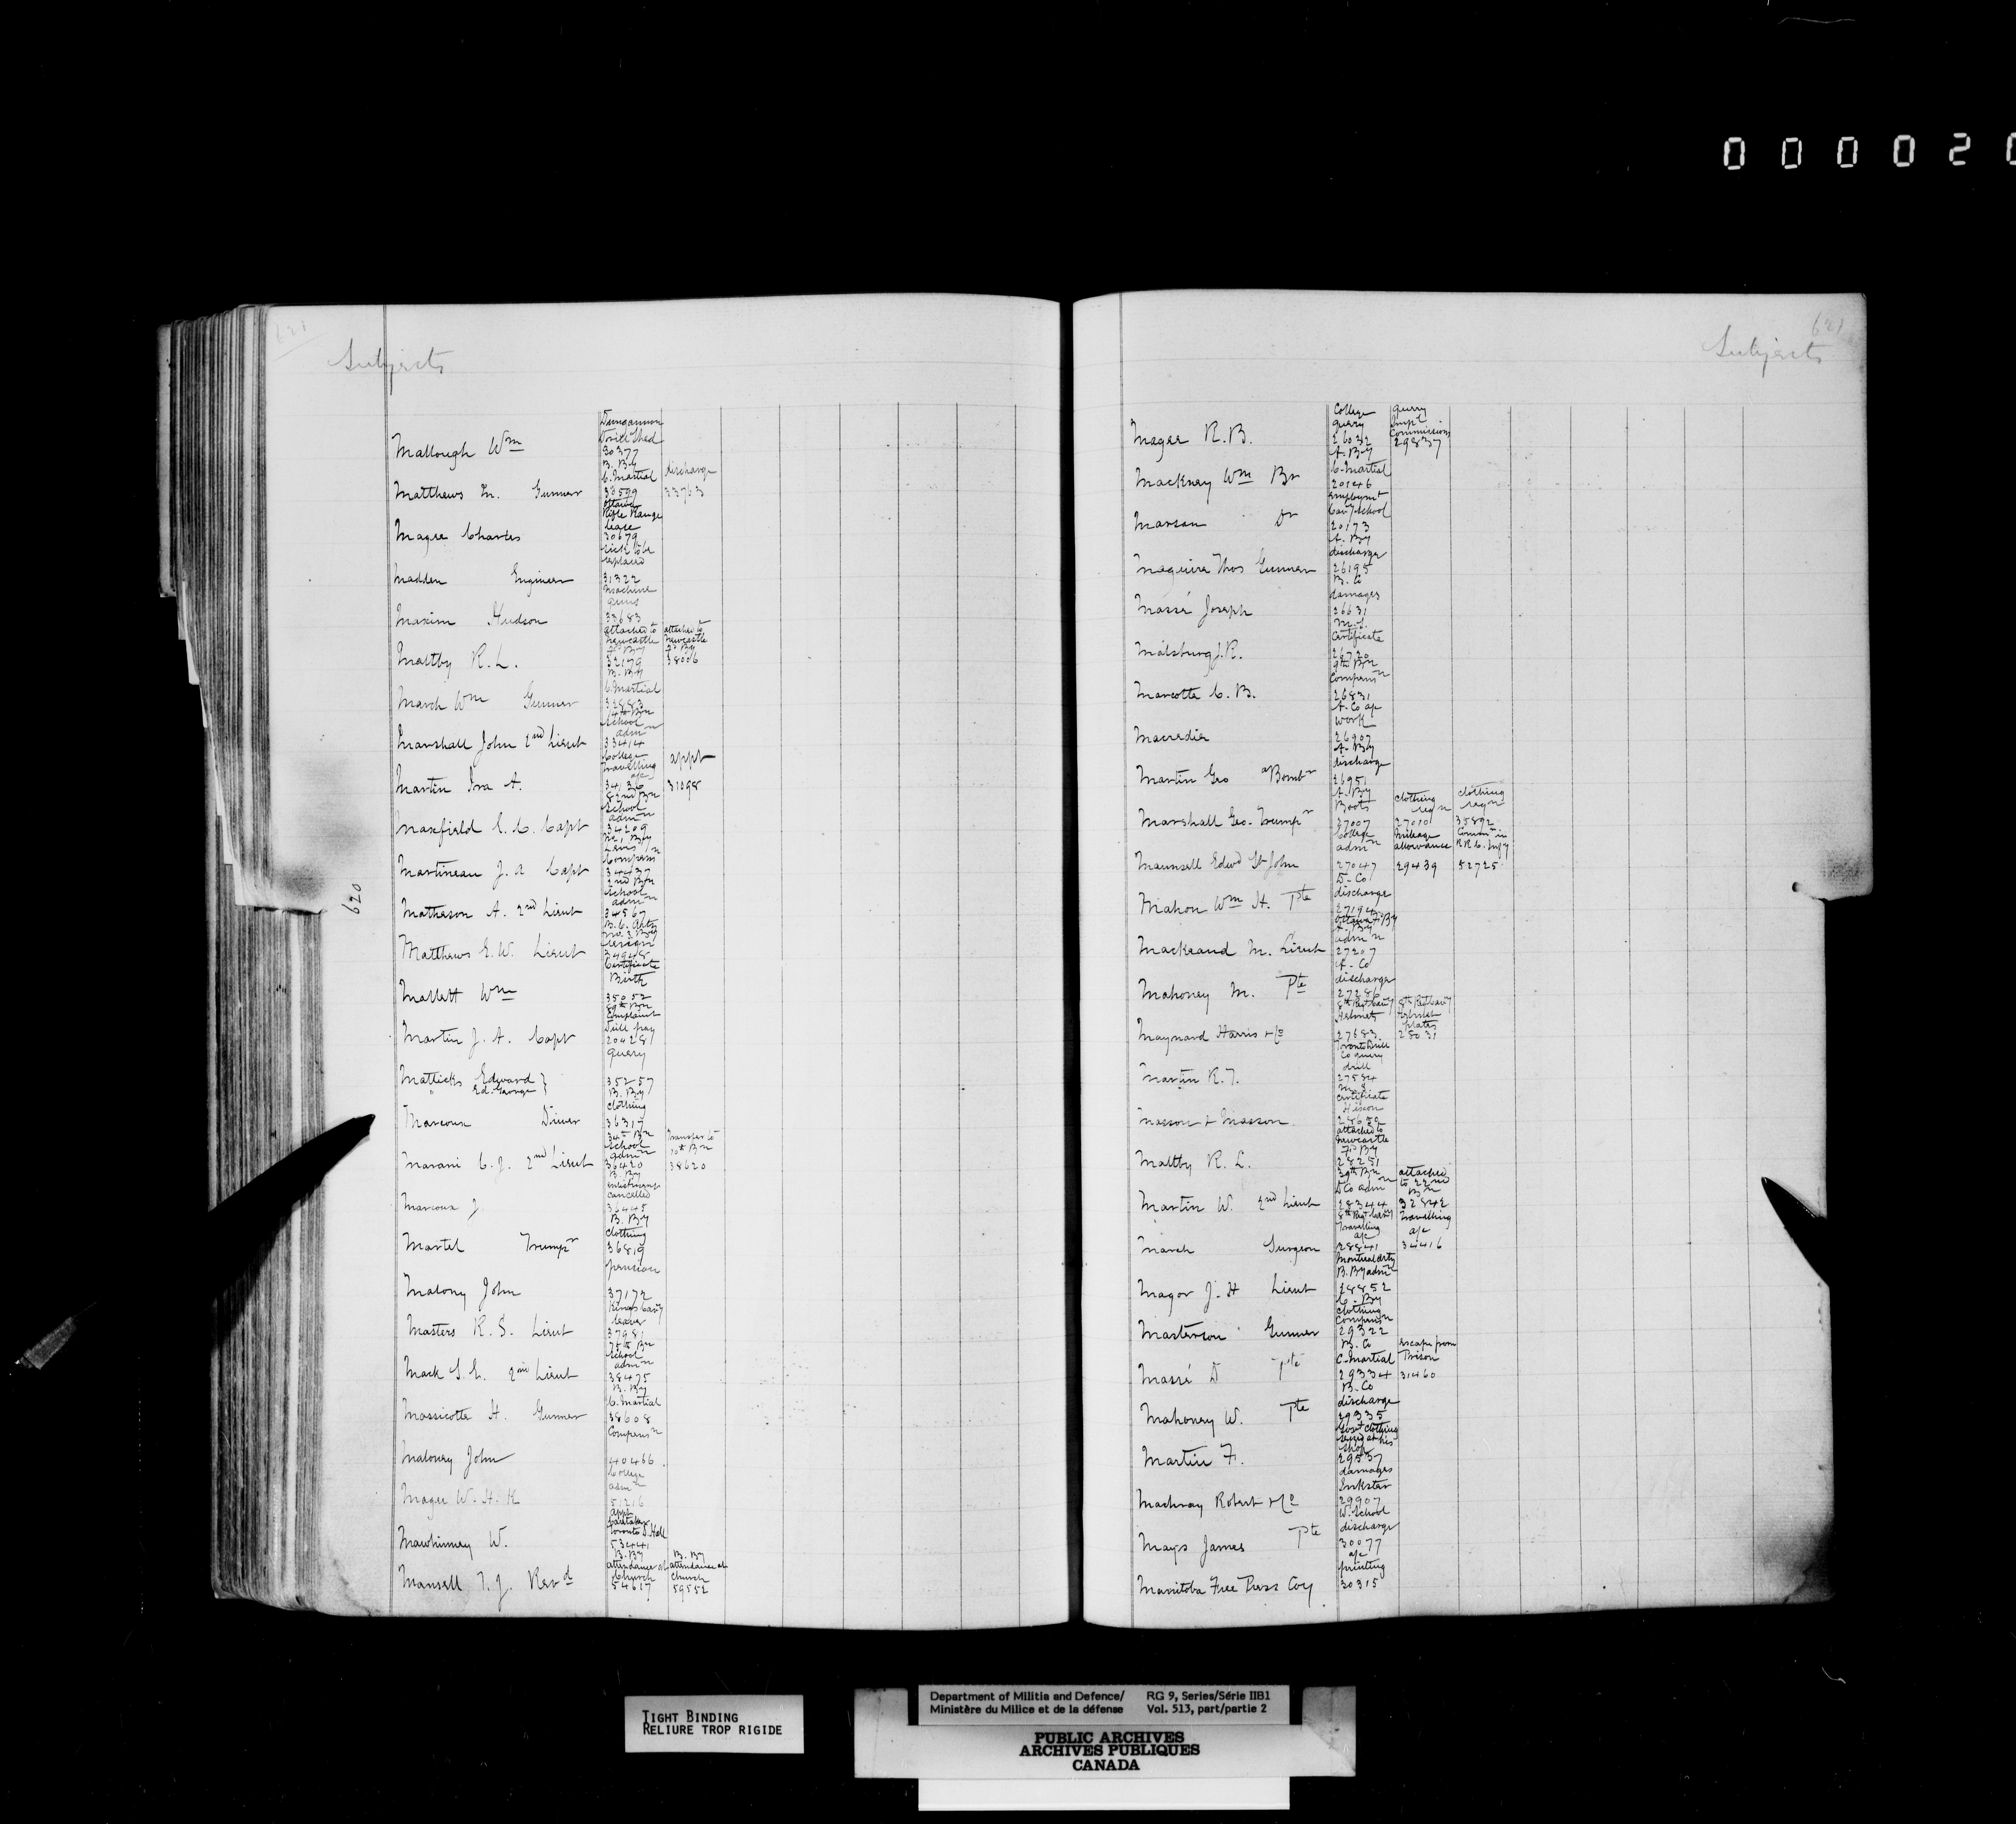 000020
621
Subjects
Mallough Wm
Dungannon
Drill Shed
30377
Matthews M. Gunner
B. By
C. Martial
30599
discharge
33763
Magee Charles
Ottawa
Rifle Range
lease
30679
Madden Engineer
sick to be
replaced
31322
Maxim Hudson
Machine
guns
33683
Maltby R. L.
attached to
Newcastle
Fd By
32179
attached to
Newcastle
Fd By
38006
March Wm Gunner
B. By
C. Martial
32883
Marshall John 2nd Lieut
School
admn
33414
Martin Ira A.
College
travelling
a/c
34136
appt
31098
Masefield C. C. Capt
82nd Bn
School
admn
34209
Martineau J. A Capt
Levis
Compens
34437
Matheson A. 2nd Lieut
2nd Bn
School
admn
34567
620
Matthews E. W. Lieut
B. C. Arty
No. 3 By
resign
34948
Mallett Wm
Certificate
Birth
35052
Martin J. A. Capt
89th Bn
Complaint
Drill pay
20428
Matlicks Edward }
" Ed. George
query
35257
Marcoux Driver
B. By
clothing
36317
Marani C. J. 2nd Lieut
34th Bn
School
admn
36420
transfer to
10th Bn
38620
Marcoux J
B. By
enlistment
cancelled
36445
Martel Trumpr
B. By
clothing
36819
Malony John
pension
37172
Masters R. S. Lieut
Kings Cavy
leave
37981
Mack S. L. 2nd Lieut
75th Bn
School
admn
38475
Massicotte H. Gunner
B. By
C. Martial
38608
Maloney John
Compensn
40466
Magee W. H. K
College
admn
51216
Mawhinney W.
appt
Caretaker
Toronto D. Hall
53441
Mansell T. J. Revd
B. By
attendance at
Church
54617
B. By
attendance at
Church
59552
621
Subjects
Magee R. B.
College
query
26032
query
Impl
Commissions
29837
Mackney Wm Br
A. By
C. Martial
20146
Marsan Dr
employmt
Cavy School
20173
Maguire Thos Gunner
A. By
discharge
26195
Massé Joseph
B. Co
damages
26631
Malsburg J. R.
M. S.
Certificate
26720
Marcotte C. B.
9th Bn
Compensn
26831
Macredie
A. Co a/c
work
26907
Martin Geo aBombr
A. By
discharge
26951
Marshall Geo. Trumpr
A. By
Boots
27007
clothing
reqn
27010
clothing
reqn
35892
Maunsell Edwd St John
College
admn
27047
Mileage
allowance
29439
Commn in
R. R. C. Infy
52725
Mahon Wm H. Pte
D. Co
discharge
27194
Mackeand M. Lieut
Ottawa F. By
A. By
admn
27207
Mahoney M. Pte
A. Co
discharge
27286
Maynard Harris & Co
8th Regt Cavy
Helmets
27683
8th Regt Cavy
Helmet
plates
28031
Martin R. T.
Toronto Drill
Co query
drill
27584
Masson & Masson
M. S.
Certificate
Hisson
28659
Maltby R. L.
attached to
Newcastle
Fd By
28251
Martin W. 2nd Lieut
39th Bn
D Co admn
28344
attached
to 22nd
Bn
32842
March Surgeon
8th Regt Cavy
Travelling
a/c
28841
Travelling
a/c
34416
Magor J. H Lieut
Montreal Arty
B. By admn
28852
Masterson Gunner
C. By
clothing
Compensn
29322
Massé D Pte
B. Co
C. Martial
29334
escape from
Prison
31460
Mahoney W. Pte
B. Co
discharge
29335
Martin F.
Govt clothing
seized at his
shop
29537
Machray Robert & Co
damages
Inkster
29907
Mays James Pte
W. School
discharge
30077
Manitoba Free Press Coy
a/c
printing
30315
TIGHT BINDING
RELIURE TROP RIGIDE
Department of Militia and Defence/ RG 9, Series/Série IIB1
Ministère du Milice et de la défense Vol. 513, part/partie 2
PUBLIC ARCHIVES
ARCHIVES PUBLIQUES
CANADA